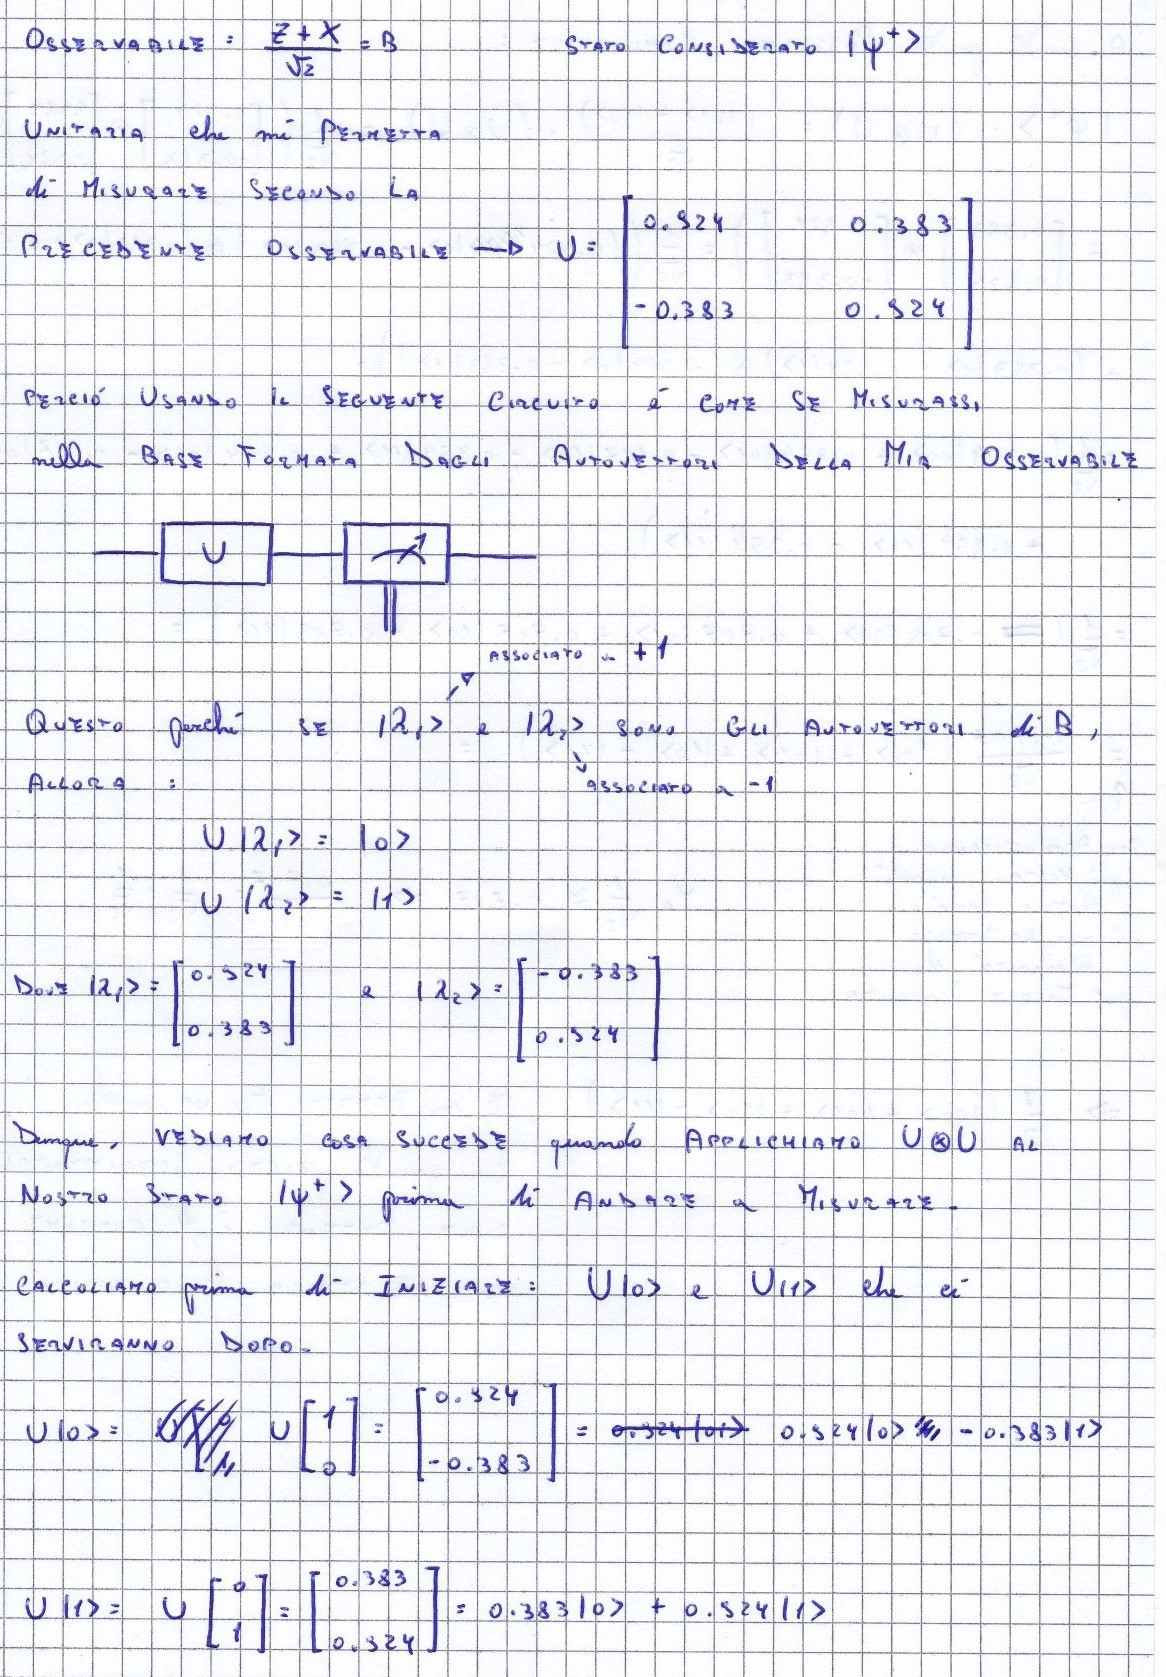 OSSERVABILE : Z + X / √2 = B STATO CONSIDERATO |ψ⁺>
UNITARIA che mi PERMETTA
di MISURARE SECONDO LA
PRECEDENTE OSSERVABILE → U = [ 0.924 0.383
-0.383 0.924 ]
PERCIÓ USANDO IL SEGUENTE CIRCUITO é COME SE MISURASSI
nella BASE FORMATA DAGLI AUTOVETTORI DELLA MIA OSSERVABILE
U
ASSOCIATO a +1
QUESTO perché SE |λ₁> e |λ₂> SONO GLI AUTOVETTORI di B,
ALLORA : ASSOCIATO a -1
U |λ₁> = |0>
U |λ₂> = |1>
DOVE |λ₁> = [ 0.924 0.383 ] e |λ₂> = [ -0.383 0.924 ]
Dunque, VEDIAMO COSA SUCCEDE quando APPLICHIAMO U⊗U AL
NOSTRO STATO |ψ⁺> prima di ANDARE a MISURARE.
CALCOLIAMO prima di INIZIARE : U|0> e U|1> che ci
SERVIRANNO DOPO.
U|0> = U [ 1 0 ] = [ 0.924 -0.383 ] = 0.924|0> - 0.383|1>
U|1> = U [ 0 1 ] = [ 0.383 0.924 ] = 0.383|0> + 0.924|1>